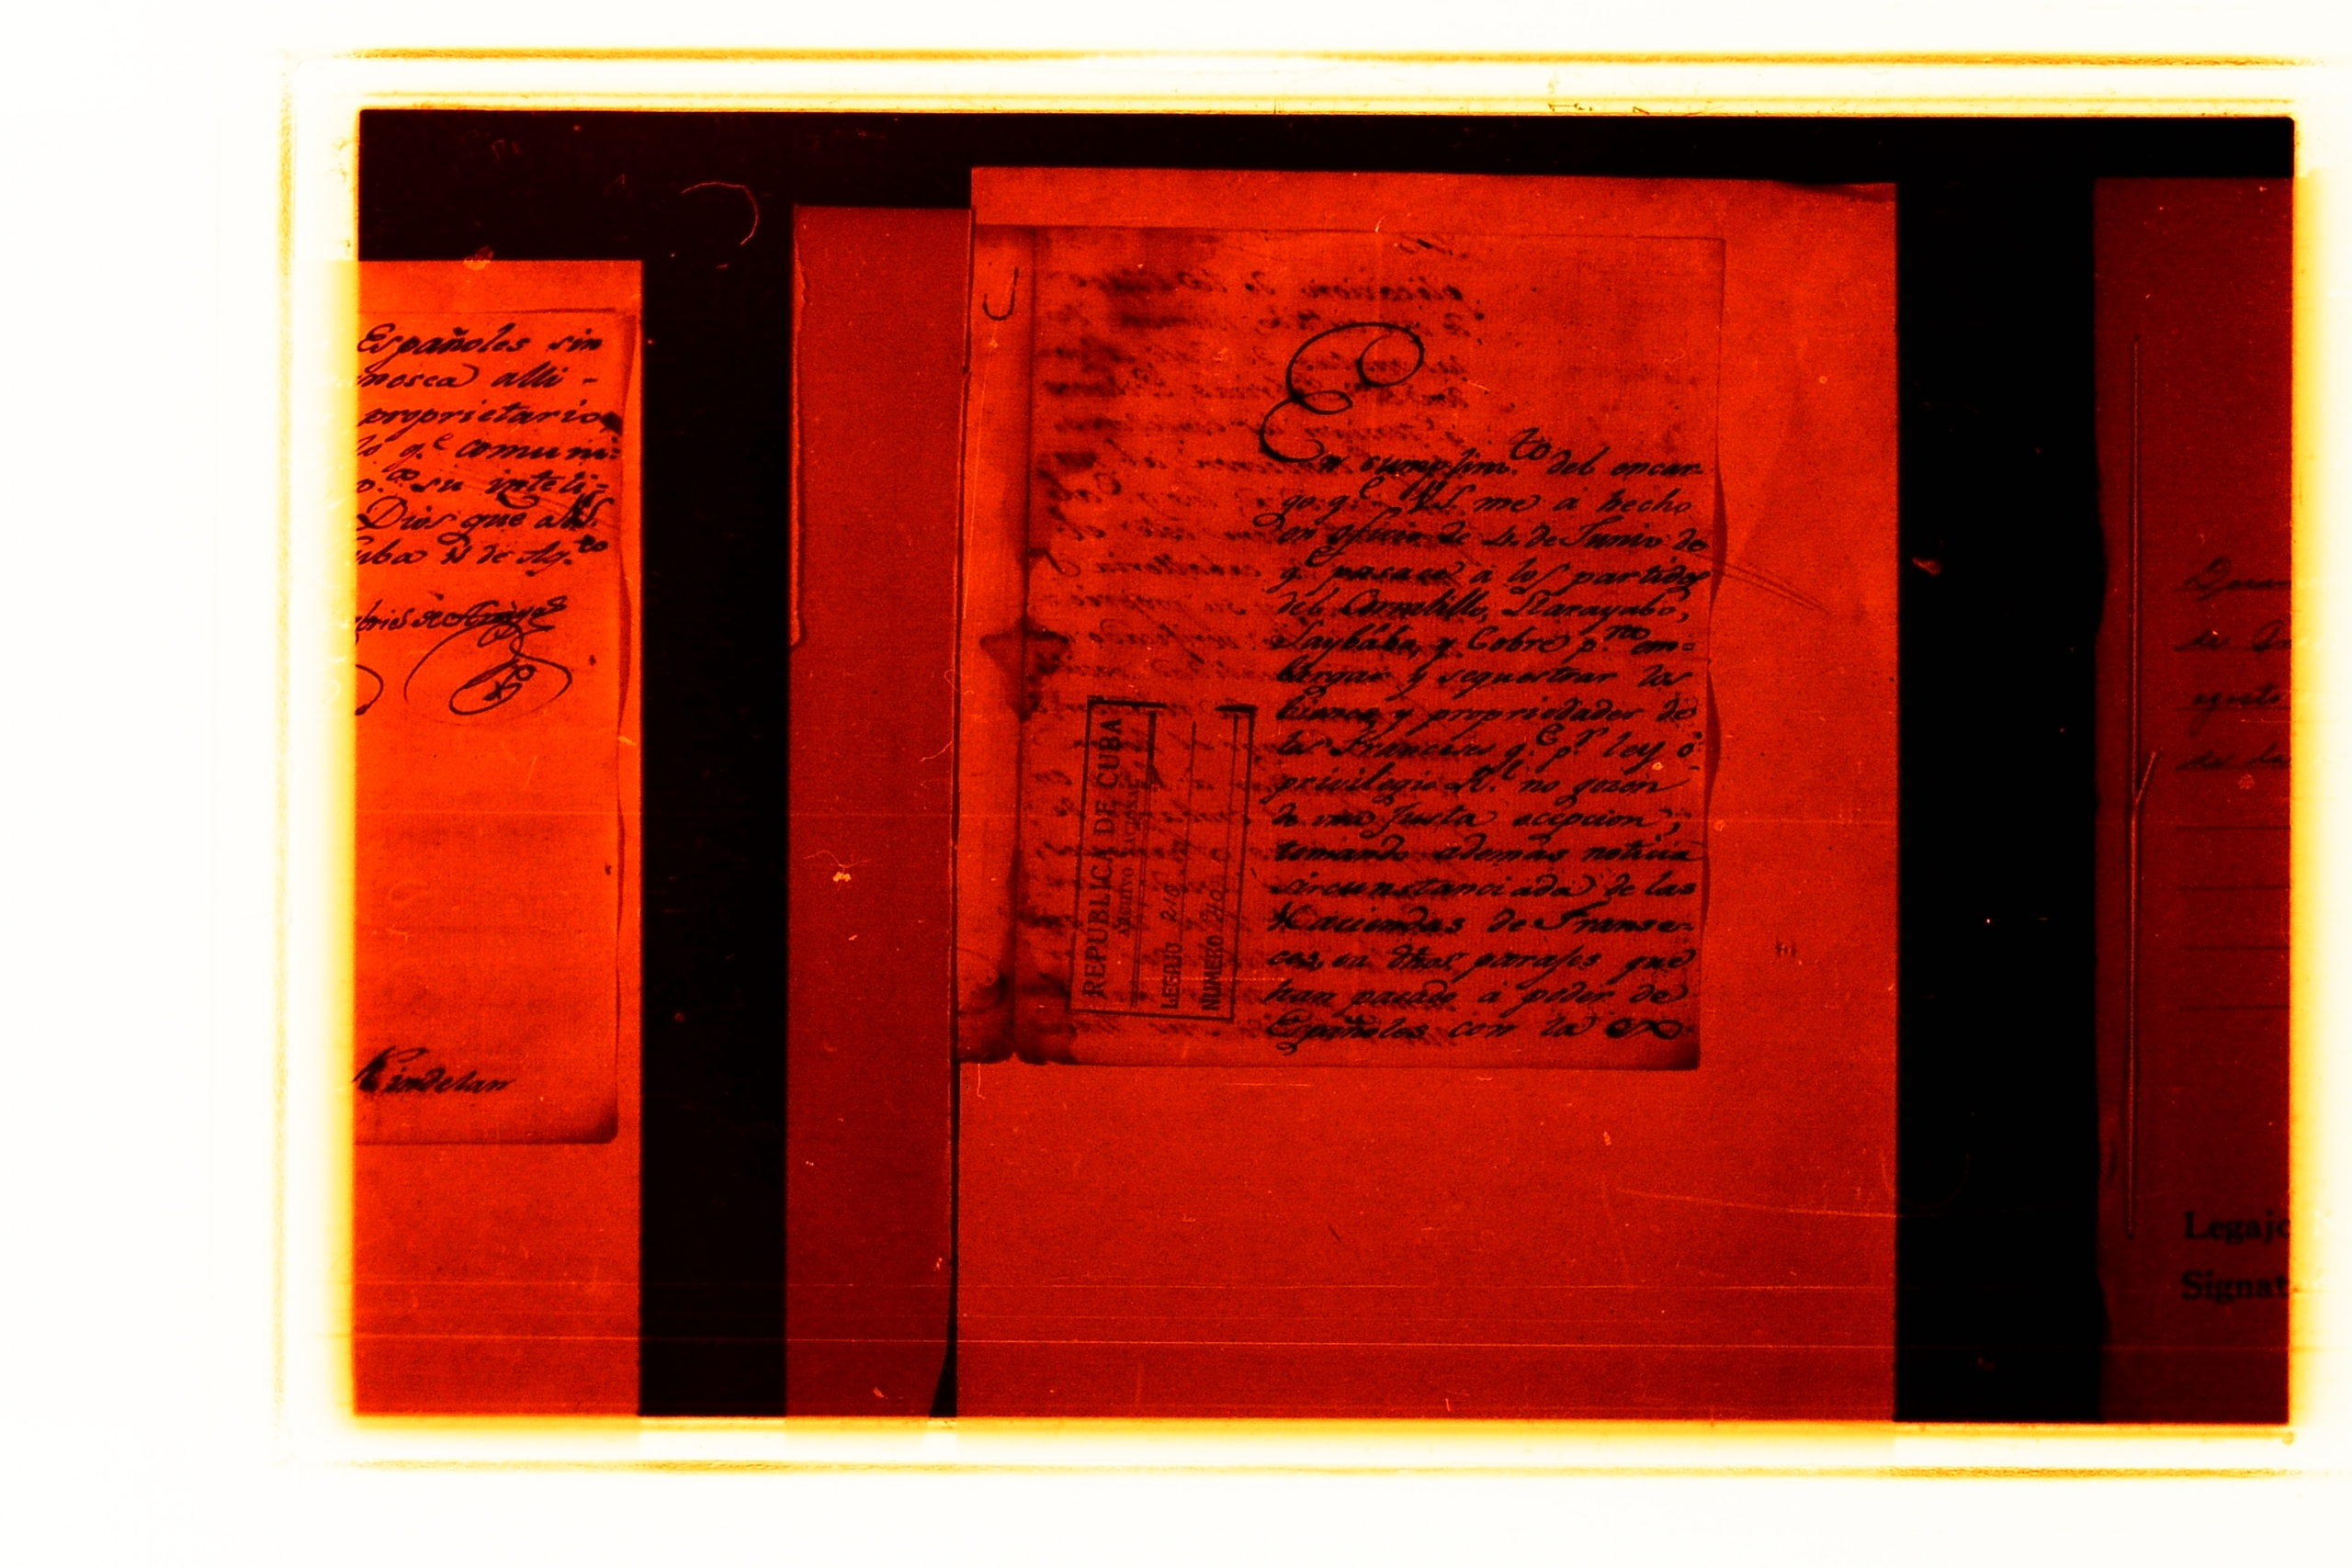 Españoles sin
nosca alli -
proprietario,
lo q.e comuni=
su inteli=
Dios que a
uba de Ag.to
Kindelan
En cumplim.to del encar
go q.e V.S. me á hecho
en oficio de 4. de Junio de
q.e pasase á los partidos
del Carretillo, Ramayabo,
y Cobre p.a em=
bargar y sequestrar los
bienes y propriedades de
los Franceses q.e p.r ley ó
privilegio R.l no gozen
de una Justa ecepcion;
tomando ademas noticia
circunstanciada de las
Haciendas de Franse-
ces, en dhos parajes que
han pasado á poder de
Españoles con la ex
REPUBLICA DE CUBA
ARCHIVO NACIONAL
LEGAJO 210
NUMERO 210
agosto
Legajo
Signat